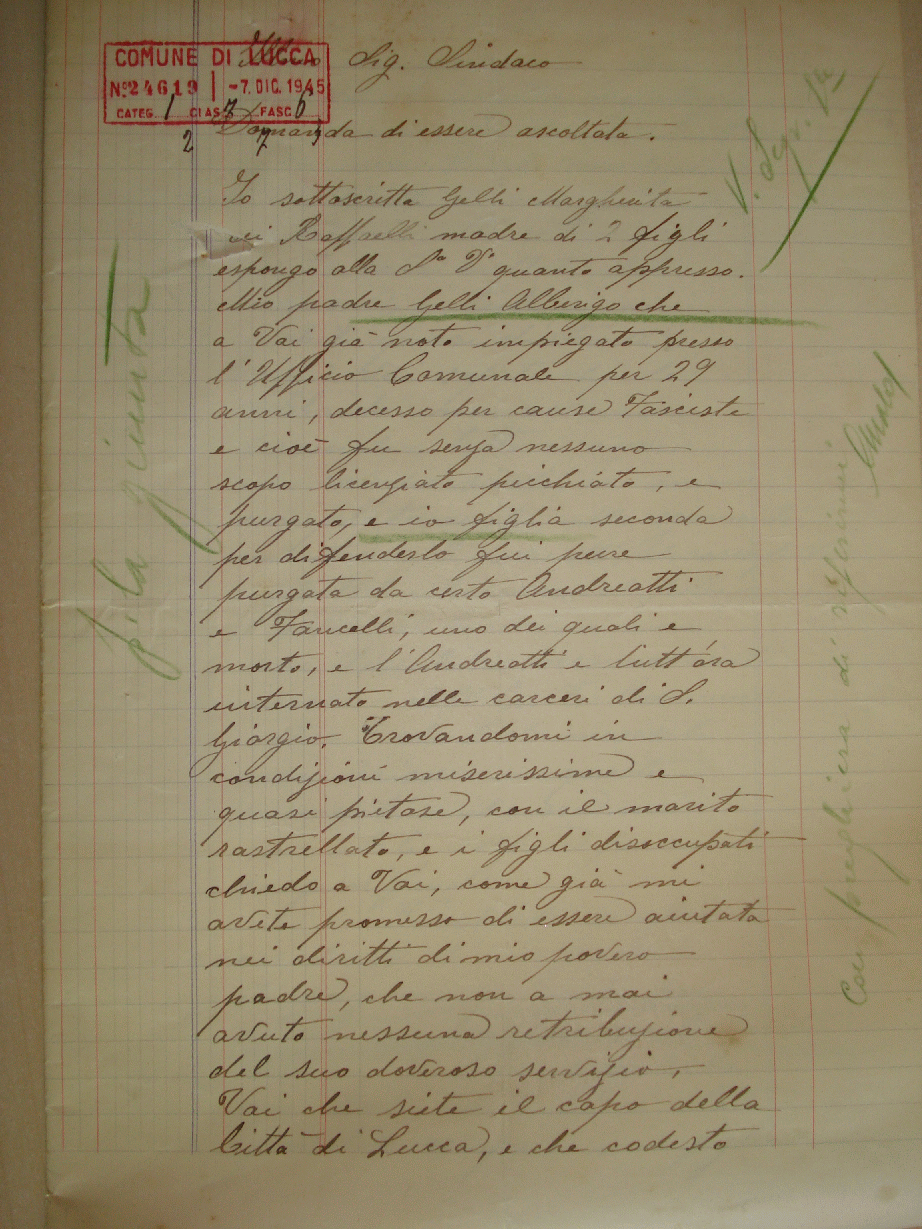 COMUNE DI LUCCA
No 24619 -7. DIC. 1945
CATEG. 1 CLAS. 7 FASC. 6
2 7 3
Ill.mo Sig. Sindaco
Domanda di essere ascoltata.
V. Segr.
Io sottoscritta Gelli Margherita
nei Raffaelli madre di 2 figli
espongo alla Sa Va quanto appresso.
Mio padre Gelli Alberigo che
a Voi già noto impiegato presso
l'Ufficio Comunale per 29
anni, decesso per cause Fasciste
e cioè fu senza nessuno
scopo licenziato picchiato, e
purgato, e io figlia seconda
per difenderlo fui pure
purgata da certo Andreotti
e Fancelli, uno dei quali e
morto, e l'Andreotti e tutt'ora
internato nelle carceri di S.
Giorgio. Trovandomi in
condizioni miserissime e
quasi pietose, con il marito
rastrellato, e i figli disoccupati
chiedo a Voi, come già mi
avete promesso di essere aiutata
nei diritti di mio povero
padre, che non a mai
avuto nessuna retribuzione
del suo doveroso servizio.
Voi che siete il capo della
Città di Lucca, e che codesto
p. la giunta
con preghiera di riferirmi